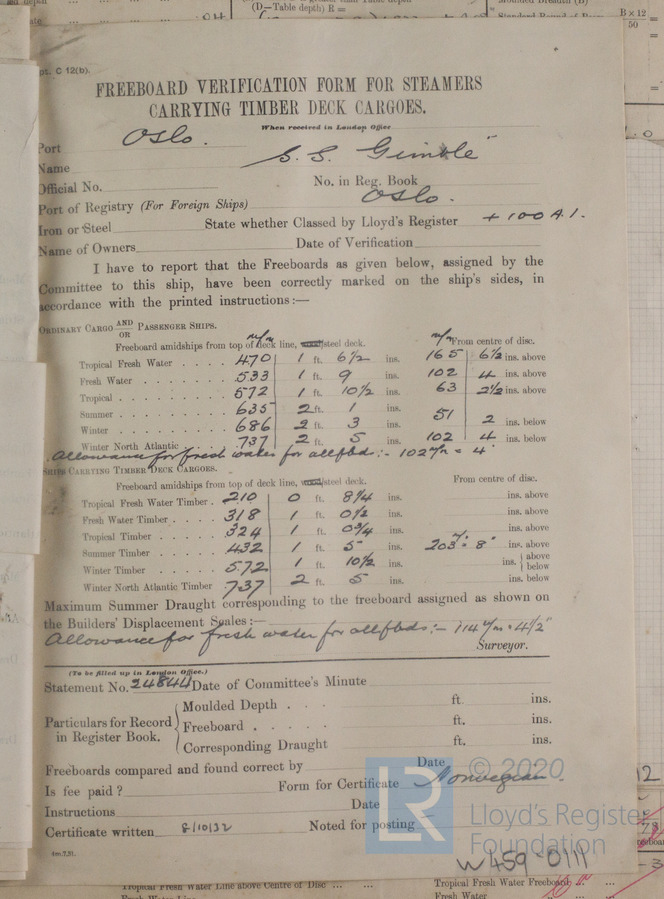 (D—Table depth) R =
B × 12
50
pt. C 12(b).
FREEBOARD VERIFICATION FORM FOR STEAMERS
CARRYING TIMBER DECK CARGOES.
When received in London Office
Port Oslo.
Name S.S. Gimle"
Official No. No. in Reg. Book
Port of Registry (For Foreign Ships) Oslo.
Iron or Steel State whether Classed by Lloyd's Register + 100 A.1.
Name of Owners Date of Verification
I have to report that the Freeboards as given below, assigned by the
Committee to this ship, have been correctly marked on the ship's sides, in
accordance with the printed instructions:—
ORDINARY CARGO AND OR PASSENGER SHIPS.
Freeboard amidships from top of deck line, steel deck. m/m From centre of disc.
Tropical Fresh Water 470 1 ft. 6½ ins. 165 6½ ins. above
Fresh Water 533 1 9 ins. 102 4 ins. above
Tropical 572 1 ft. 10½ ins. 63 2½ ins. above
Summer 635 2 ft. 1 ins.
Winter 686 2 ft. 3 ins. 51 2 ins. below
Winter North Atlantic 737 2 ft. 5 ins. 102 4 ins. below
Allowance for fresh water for all fbds :- 102 m/m = 4"
SHIPS CARRYING TIMBER DECK CARGOES.
Freeboard amidships from top of deck line, steel deck. From centre of disc.
Tropical Fresh Water Timber 210 0 ft. 8¼ ins. ins. above
Fresh Water Timber 318 1 ft. 0½ ins. ins. above
Tropical Timber 324 1 ft. 0¾ ins. ins. above
Summer Timber 432 1 ft. 5 ins. 203 = 8" ins. above
Winter Timber 572 1 ft. 10½ ins. ins. { above below
Winter North Atlantic Timber 737 2 ft. 5 ins. ins. below
Maximum Summer Draught corresponding to the freeboard assigned as shown on
the Builders' Displacement Scales:—
Allowance for fresh water for all fbds :- 114 m/m = 4½"
Surveyor.
(To be filled up in London Office.)
Statement No. 24844 Date of Committee's Minute
Particulars for Record in Register Book.
Moulded Depth ft. ins.
Freeboard ft. ins.
Corresponding Draught ft. ins.
Freeboards compared and found correct by Date
Is fee paid? Form for Certificate Norwegian.
Instructions Date
Certificate written 8/10/32 Noted for posting
4m.7.31.
© 2020
LR
Lloyd's Register
Foundation
W459-0111
Tropical Fresh Water Line above Centre of Disc ... ... Tropical Fresh Water Freeboard